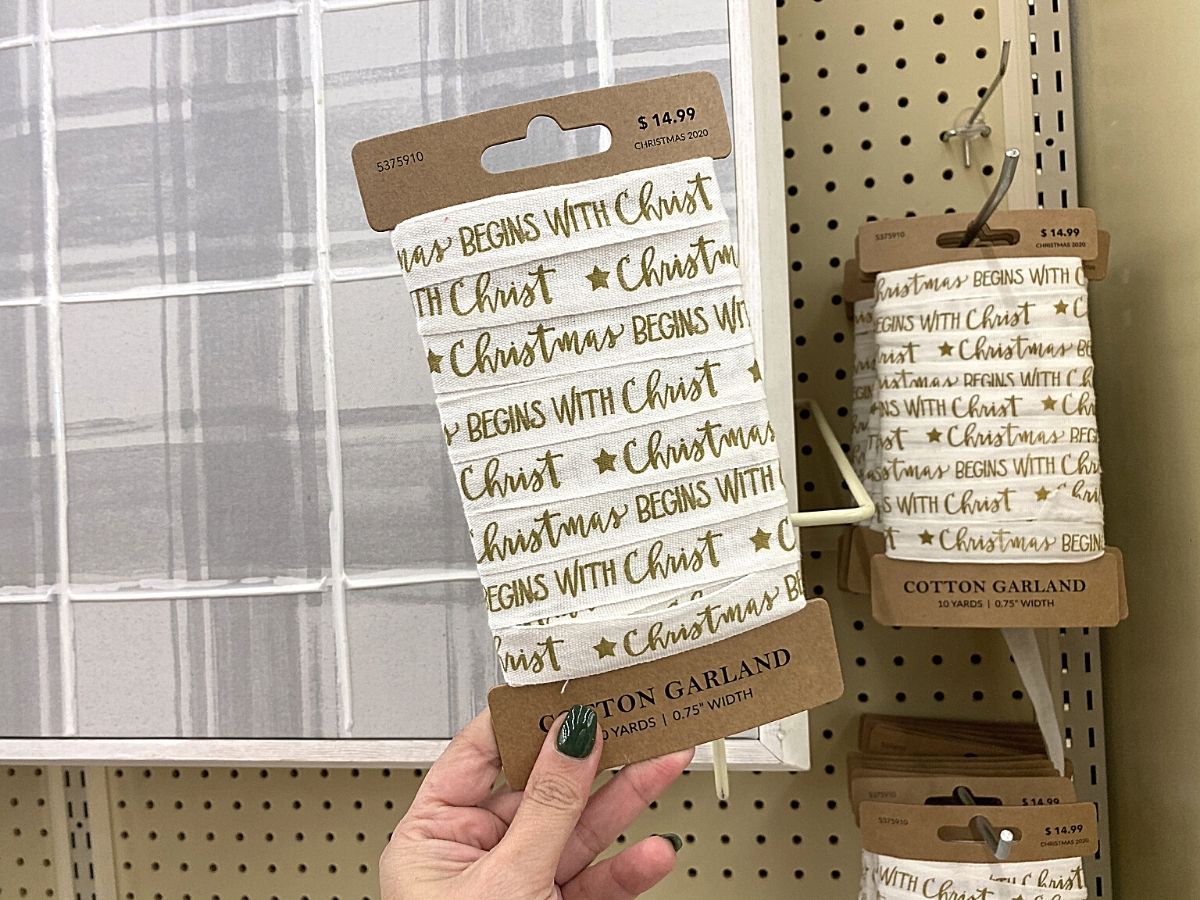 5375910
$ 14.99
CHRISTMAS 2020
mas BEGINS WITH Christ
TH Christ ★ Christm
★ Christmas BEGINS WIT
BEGINS WITH Christ ★
Christ ★ Christmas
Christmas BEGINS WITH C
BEGINS WITH Christ ★ C
Christmas BE
rist ★ Christmas
COTTON GARLAND
0 YARDS | 0.75" WIDTH
5375910
$ 14.99
CHRISTMAS 2020
hristmas BEGINS WITH C
EGINS WITH Christ ★ C
rist ★ Christmas BE
istmas BEGINS WITH Ch
NS WITH Christ ★ Chr
rist ★ Christmas BEG
stmas BEGINS WITH Chr
S WITH Christ ★ Chri
t ★ Christmas BEGIN
COTTON GARLAND
10 YARDS | 0.75" WIDTH
5375910
$ 14.99
5375910
$ 14.99
CHRISTMAS 2020
WITH Christ